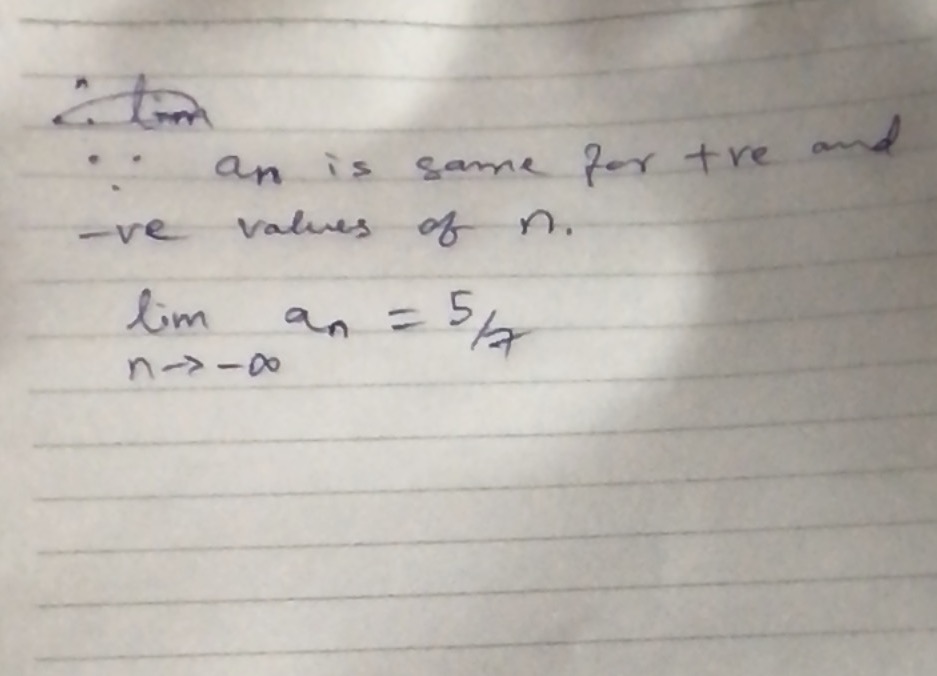 ∴ lim
∵ an is same for +ve and
-ve values of n.
lim an = 5/7
n→-∞